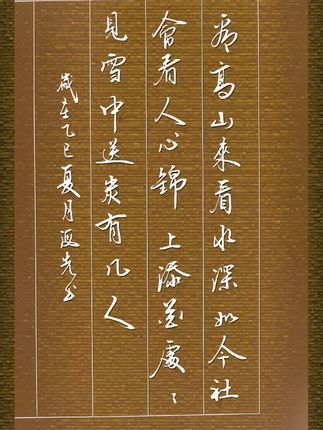 看高山來看水深如今社
會看人心錦上添花處々
見雪中送炭有几人
歲在乙巳夏月光书